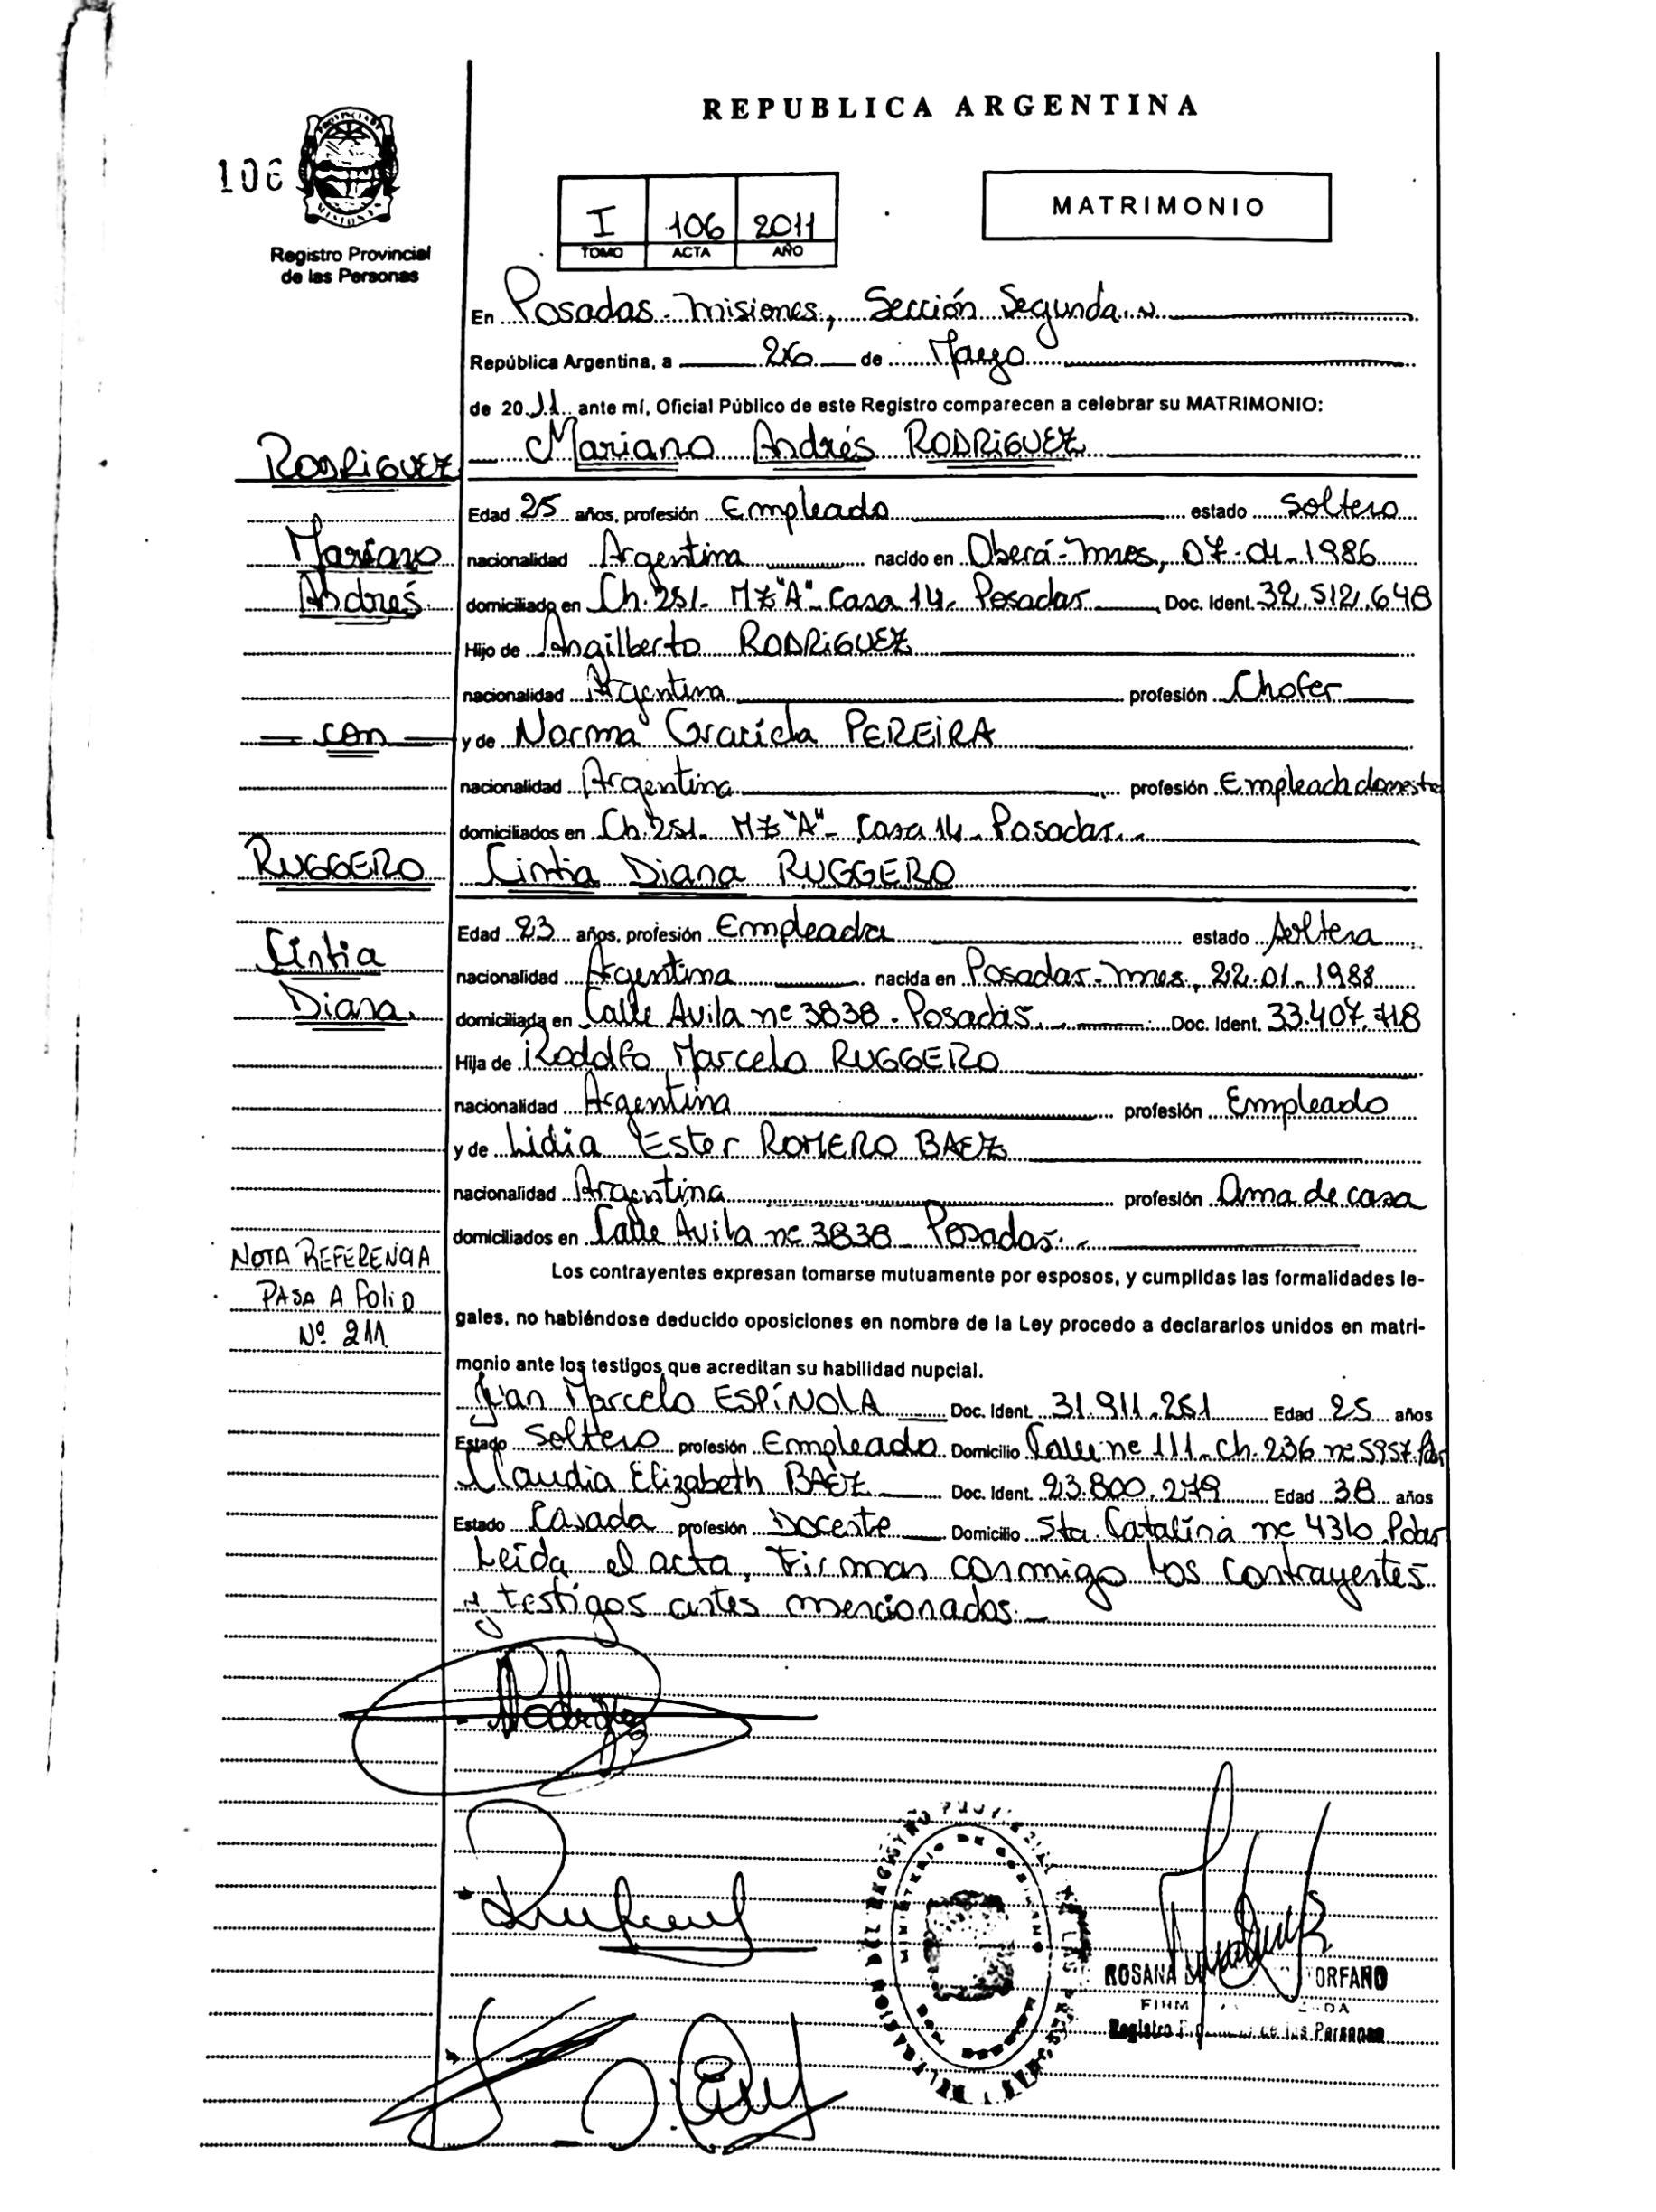 REPUBLICA ARGENTINA
106
Registro Provincial
de las Personas
I 106 2011
TOMO ACTA AÑO
MATRIMONIO
En Posadas - Misiones, Sección Segunda
República Argentina, a 26 de Mayo
de 2011 ante mí, Oficial Público de este Registro comparecen a celebrar su MATRIMONIO:
RODRIGUEZ Mariano Andrés RODRIGUEZ
Edad 25 años, profesión Empleado estado soltero
Mariano nacionalidad Argentina nacido en Oberá - Mnes, 07-01-1986
Andrés domiciliado en Ch. 251 - Mz "A" - Casa 14 - Posadas Doc. Ident. 32.512.648
Hijo de Angilberto RODRIGUEZ
nacionalidad Argentina profesión Chofer
con y de Norma Graciela PEREIRA
nacionalidad Argentina profesión Empleada
domiciliados en Ch. 251 - Mz "A" - Casa 14 - Posadas.
RUGGERO Cintia Diana RUGGERO
Edad 23 años, profesión Empleada estado soltera
Cintia nacionalidad Argentina nacida en Posadas - Mnes, 22-01-1988
Diana. domiciliada en Calle Avila nº 3838 - Posadas. Doc. Ident. 33.407.718
Hija de Rodolfo Marcelo RUGGERO
nacionalidad Argentina profesión Empleado
y de Lidia Ester ROMERO BAEZ
nacionalidad Argentina profesión Ama de casa
domiciliados en Calle Avila nº 3838 - Posadas.
NOTA REFERENCIA
PASA A FOLIO
Nº 211
Los contrayentes expresan tomarse mutuamente por esposos, y cumplidas las formalidades le-
gales, no habiéndose deducido oposiciones en nombre de la Ley procedo a declararlos unidos en matri-
monio ante los testigos que acreditan su habilidad nupcial.
Juan Marcelo ESPÍNOLA Doc. Ident. 31.911.251 Edad 25 años
Estado Soltero profesión Empleado Domicilio Calle nº 111 - Ch. 236 nº 5957
Claudia Elizabeth BAEZ Doc. Ident. 23.800.279 Edad 38 años
Estado Casada profesión Docente Domicilio Sta. Catalina nº 4310
Leída el acta, firman conmigo los contrayentes
y testigos antes mencionados.
ROSANA ORFANO
Registro de las Personas